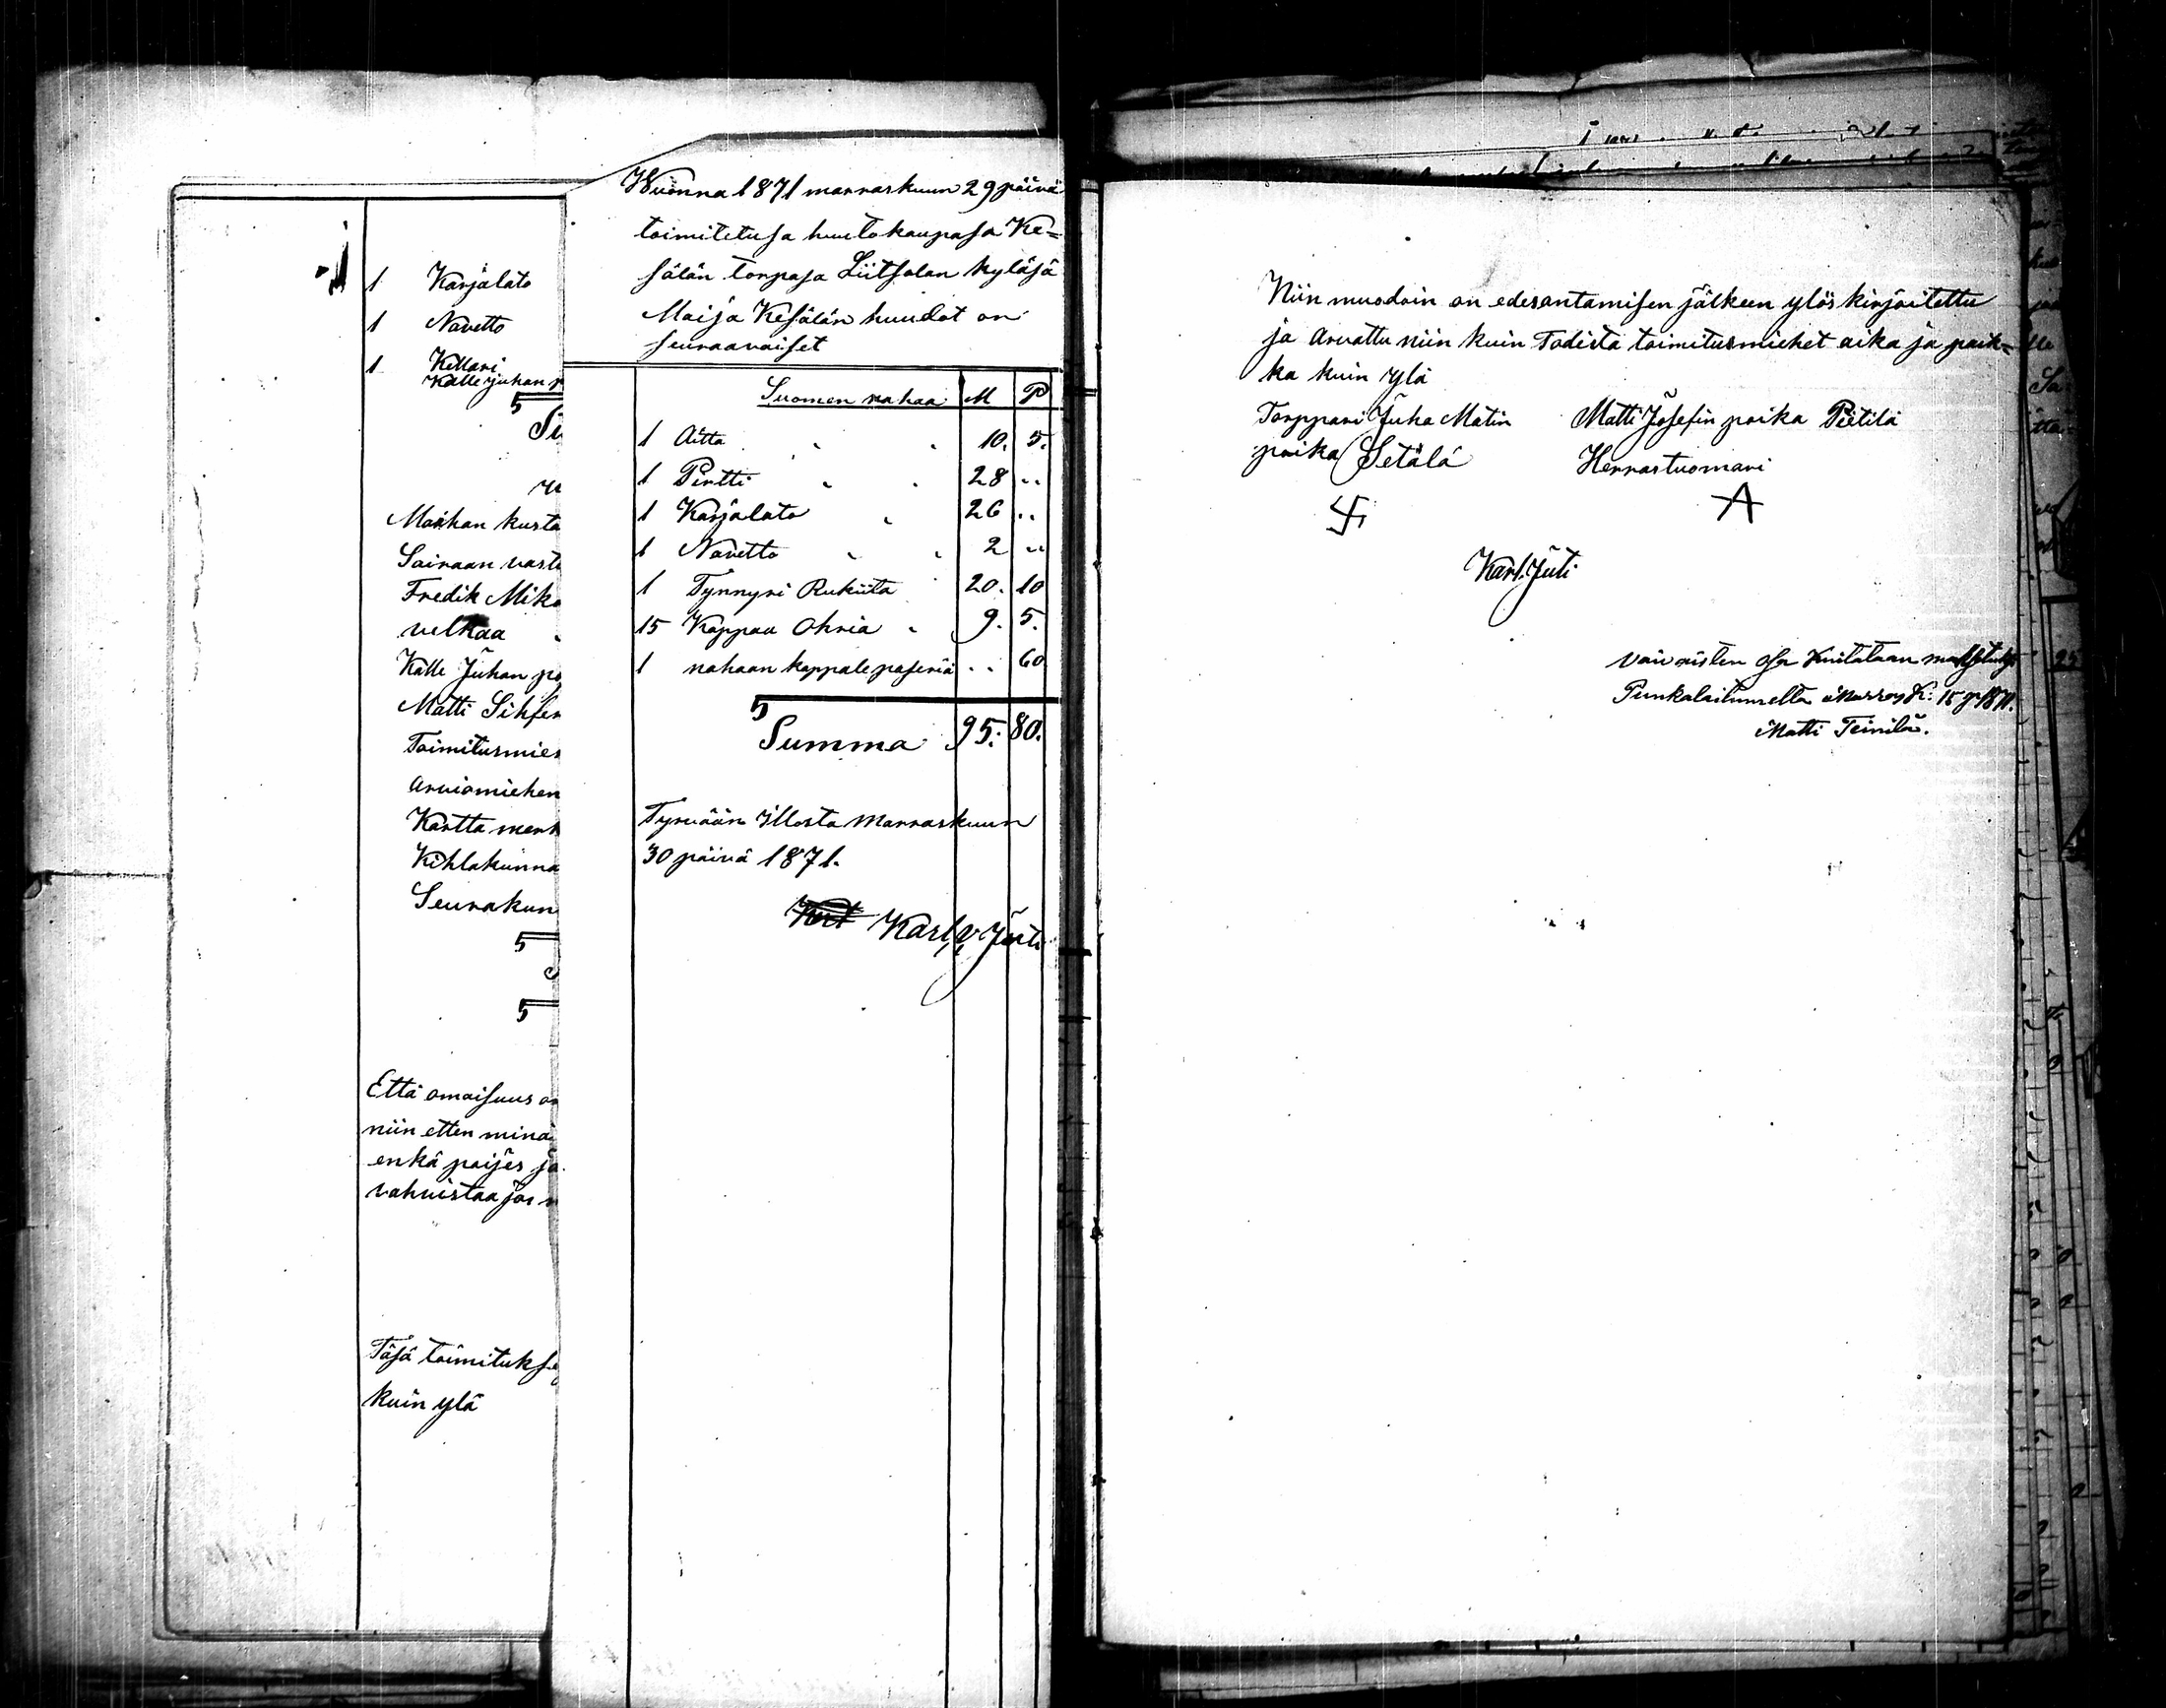 1 Karjalato
1 Navetto
1 Kellari
Kalle Juhan p
5
Su
Maahan kusta
Sairaan vast
Fredik Mika
velkaa
Kalle Juhan po
Matti Sihfer
Toimitusmies
arviomiehen
Kartta merk
Kihlakunna
Seurakun
5
5
Että omaisuus on
niin etten minä
enkä poijes ja
vahvistaa jos n
Täsä toimitukse
kuin ylä
Wuonna 1871 marraskuun 29 päivä
toimitetusa huutokaupasa Ke=
sälän torpasa Liitsolan kyläsä
Maija Kesälän huudot on
seuraavaiset
Suomen rahaa M P
1 Aitta 10. 5.
1 Pirtti 28 ..
1 Karjalato 26 ..
1 Navetto 2 ..
1 Tynnyri Rukiita 20. 10
15 Kappaa Ohria 9. 5.
1 rahaan kappale paperia .. 60
5
Summa 95. 80.
Tyrvään Illosta Marraskuun
30 päivä 1871.
Karl. V. Juti
Niin muodoin on edesantamisen jälkeen ylös kirjoitettu
ja Arvattu niin kuin Todista toimitusmiehet aika ja paik=
ka kuin ylä
Torppari Juha Matin
poika Setälä
Matti Josefin poika Pietilä
Herrastuomari
A
Karl. Juti
vaivaisten osa kuitataan
Punkalaitumella
Matti Teinilä.